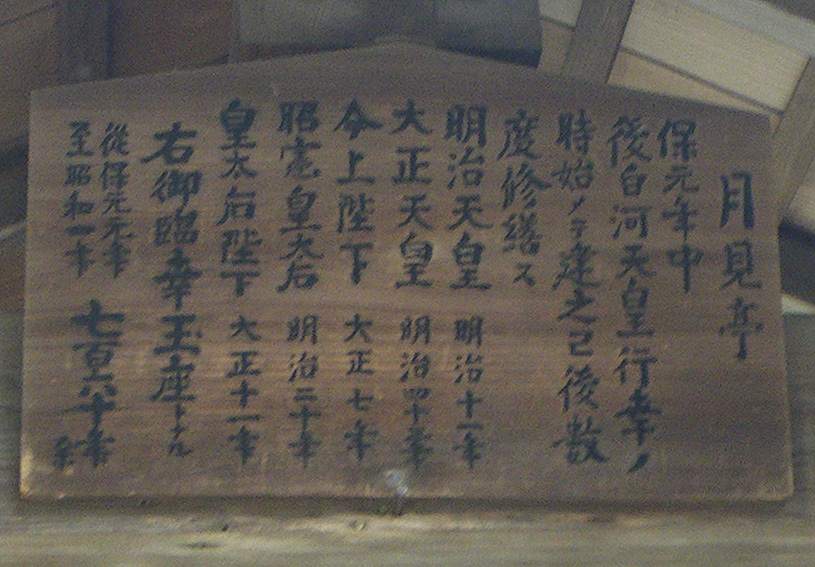 月見亭
保元年中
後白河天皇行幸ノ
時始メテ建之已後数
度修繕ス
明治天皇 明治十一年
大正天皇 明治四十三年
今上陛下 大正七年
昭憲皇太后 明治二十年
皇太后陛下 大正十一年
右御臨幸玉座トナル
從保元元年
至昭和一年
七百八十年